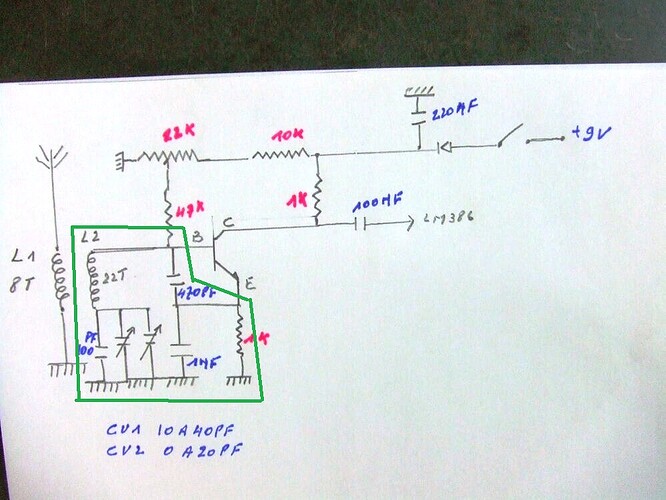 220MF
22K
10K
+9V
1K
100MF
LM386
47K
C
L2
B
L1
8T
22T
E
470PF
PF
100
1K
1MF
CV1 10A40PF
CV2 0 A20PF